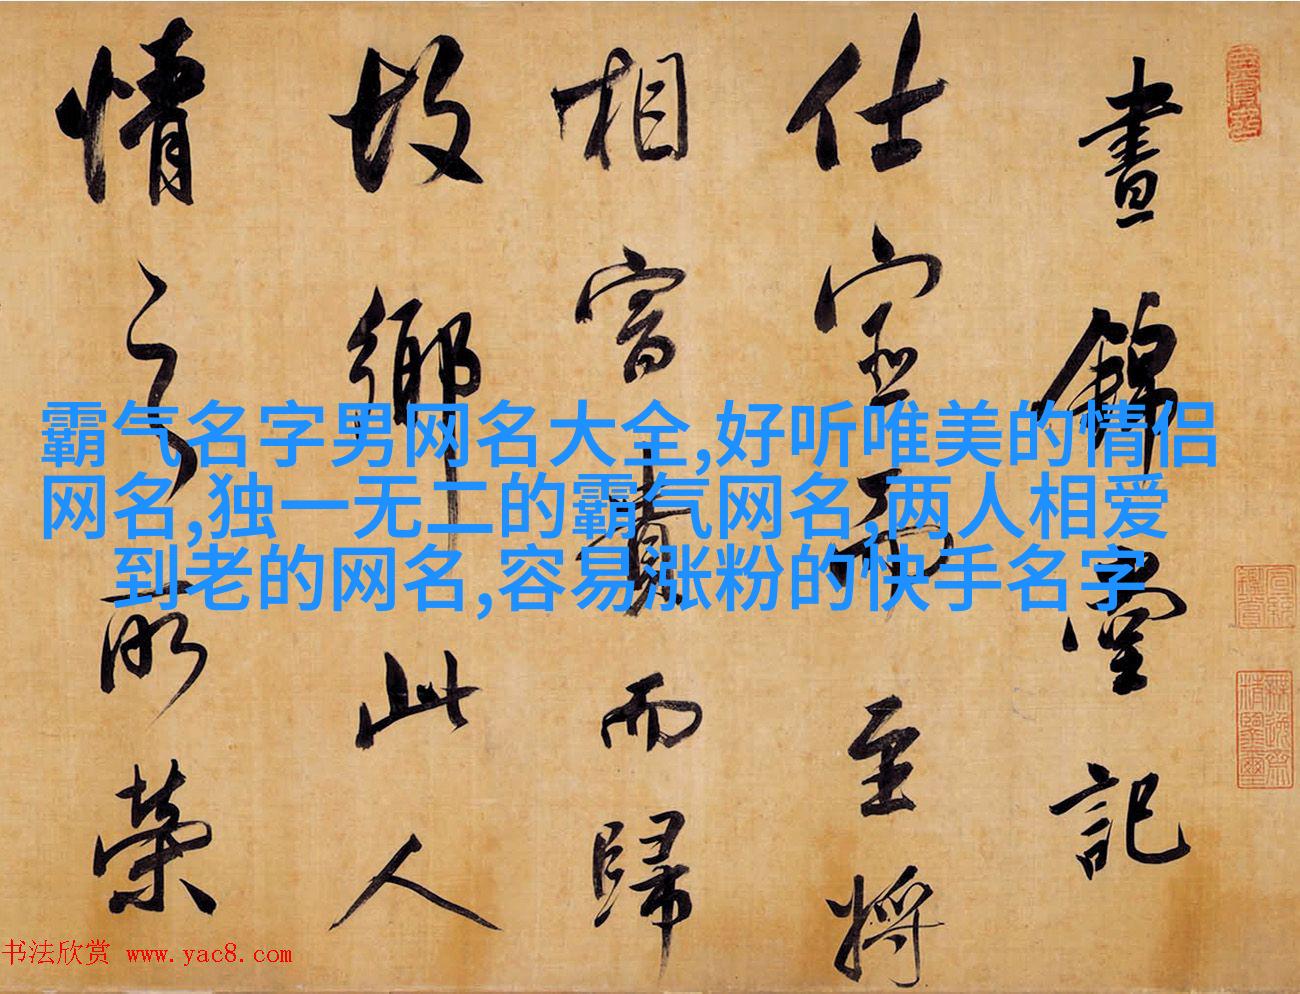 晝錦堂記
仕宦而至將
相富貴而歸
故鄉此人
情之所榮
霸气名字男网名大全,好听唯美的情侣
网名,独一无二的霸气网名,两人相爱
到老的网名,容易涨粉的快手名字
书法欣赏 www.yac8.com